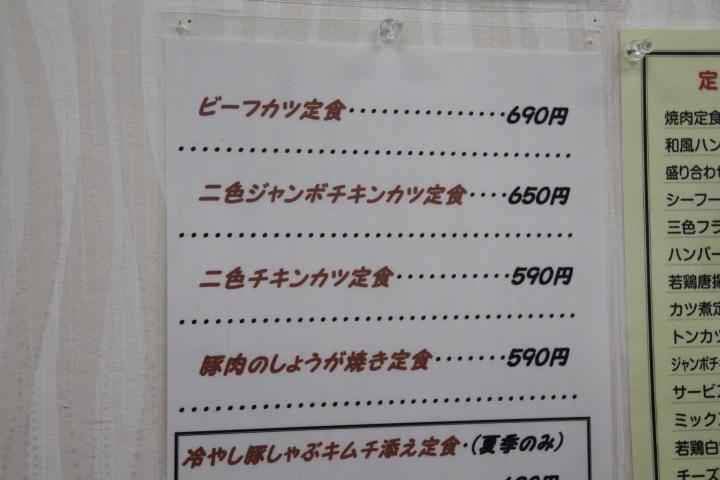 ビーフカツ定食・・・・・・・・・・・・・・・690円
二色ジャンボチキンカツ定食・・・・650円
二色チキンカツ定食・・・・・・・・・・・590円
豚肉のしょうが焼き定食・・・・・・・590円
冷やし豚しゃぶキムチ添え定食・(夏季のみ)
定
焼肉定食
和風ハン
盛り合わせ
シーフー
三色フラ
ハンバー
若鶏唐揚
カツ煮定
トンカツ
ジャンボチキ
サービス
ミックス
若鶏白
チーズ